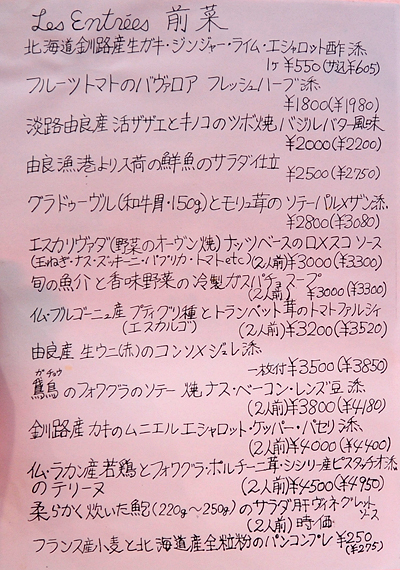 Les Entrées 前菜
北海道釧路産生ガキ・ジンジャー・ライム・エシャロット酢添
1ヶ ¥550(税込¥605)
フルーツトマトのバヴァロア フレッシュハーブ添
¥1800(¥1980)
淡路由良産 活サザエとキノコのツボ焼 バジルバター風味
¥2000(¥2200)
由良漁港より入荷の鮮魚のサラダ仕立
¥2500(¥2750)
グラドゥーヴル(和牛胃・150g)とモリュ茸の ソテーパルメザン添
¥2800(¥3080)
エスカリヴァダ(野菜のオーヴン焼)ナッツベースのロメスコ ソース
(玉ねぎ・ナス・ズッキーニ・パプリカ・トマトetc)(2人前)¥3000(¥3300)
旬の魚介と香味野菜の冷製ガスパチョスープ
(2人前) ¥3000(¥3300)
仏・ブルゴーニュ産 プティグリ種とトランペット茸のトマトファルシィ
(エスカルゴ) (2人前)¥3200(¥3520)
由良産 生ウニ(赤)のコンソメジュレ添
一枚付¥3500(¥3850)
ガチョウ
鵞鳥のフォワグラのソテー 焼ナス・ベーコン・レンズ豆 添
(2人前)¥3800(¥4180)
釧路産 カキのムニエル エシャロット・ケッパー・パセリ添
(2人前)¥4000(¥4400)
仏・ラカン産 若鶏とフォワグラ・ポルチーニ茸・シシリー産ピスタッチオ添
のテリーヌ (2人前)¥4500(¥4950)
柔らかく炊いた鮑(220g〜250g)のサラダ 肝ヴィネグレット
ソース
(2人前) 時価
フランス産小麦と北海道産全粒粉のパンコンプレ ¥250
(¥275)